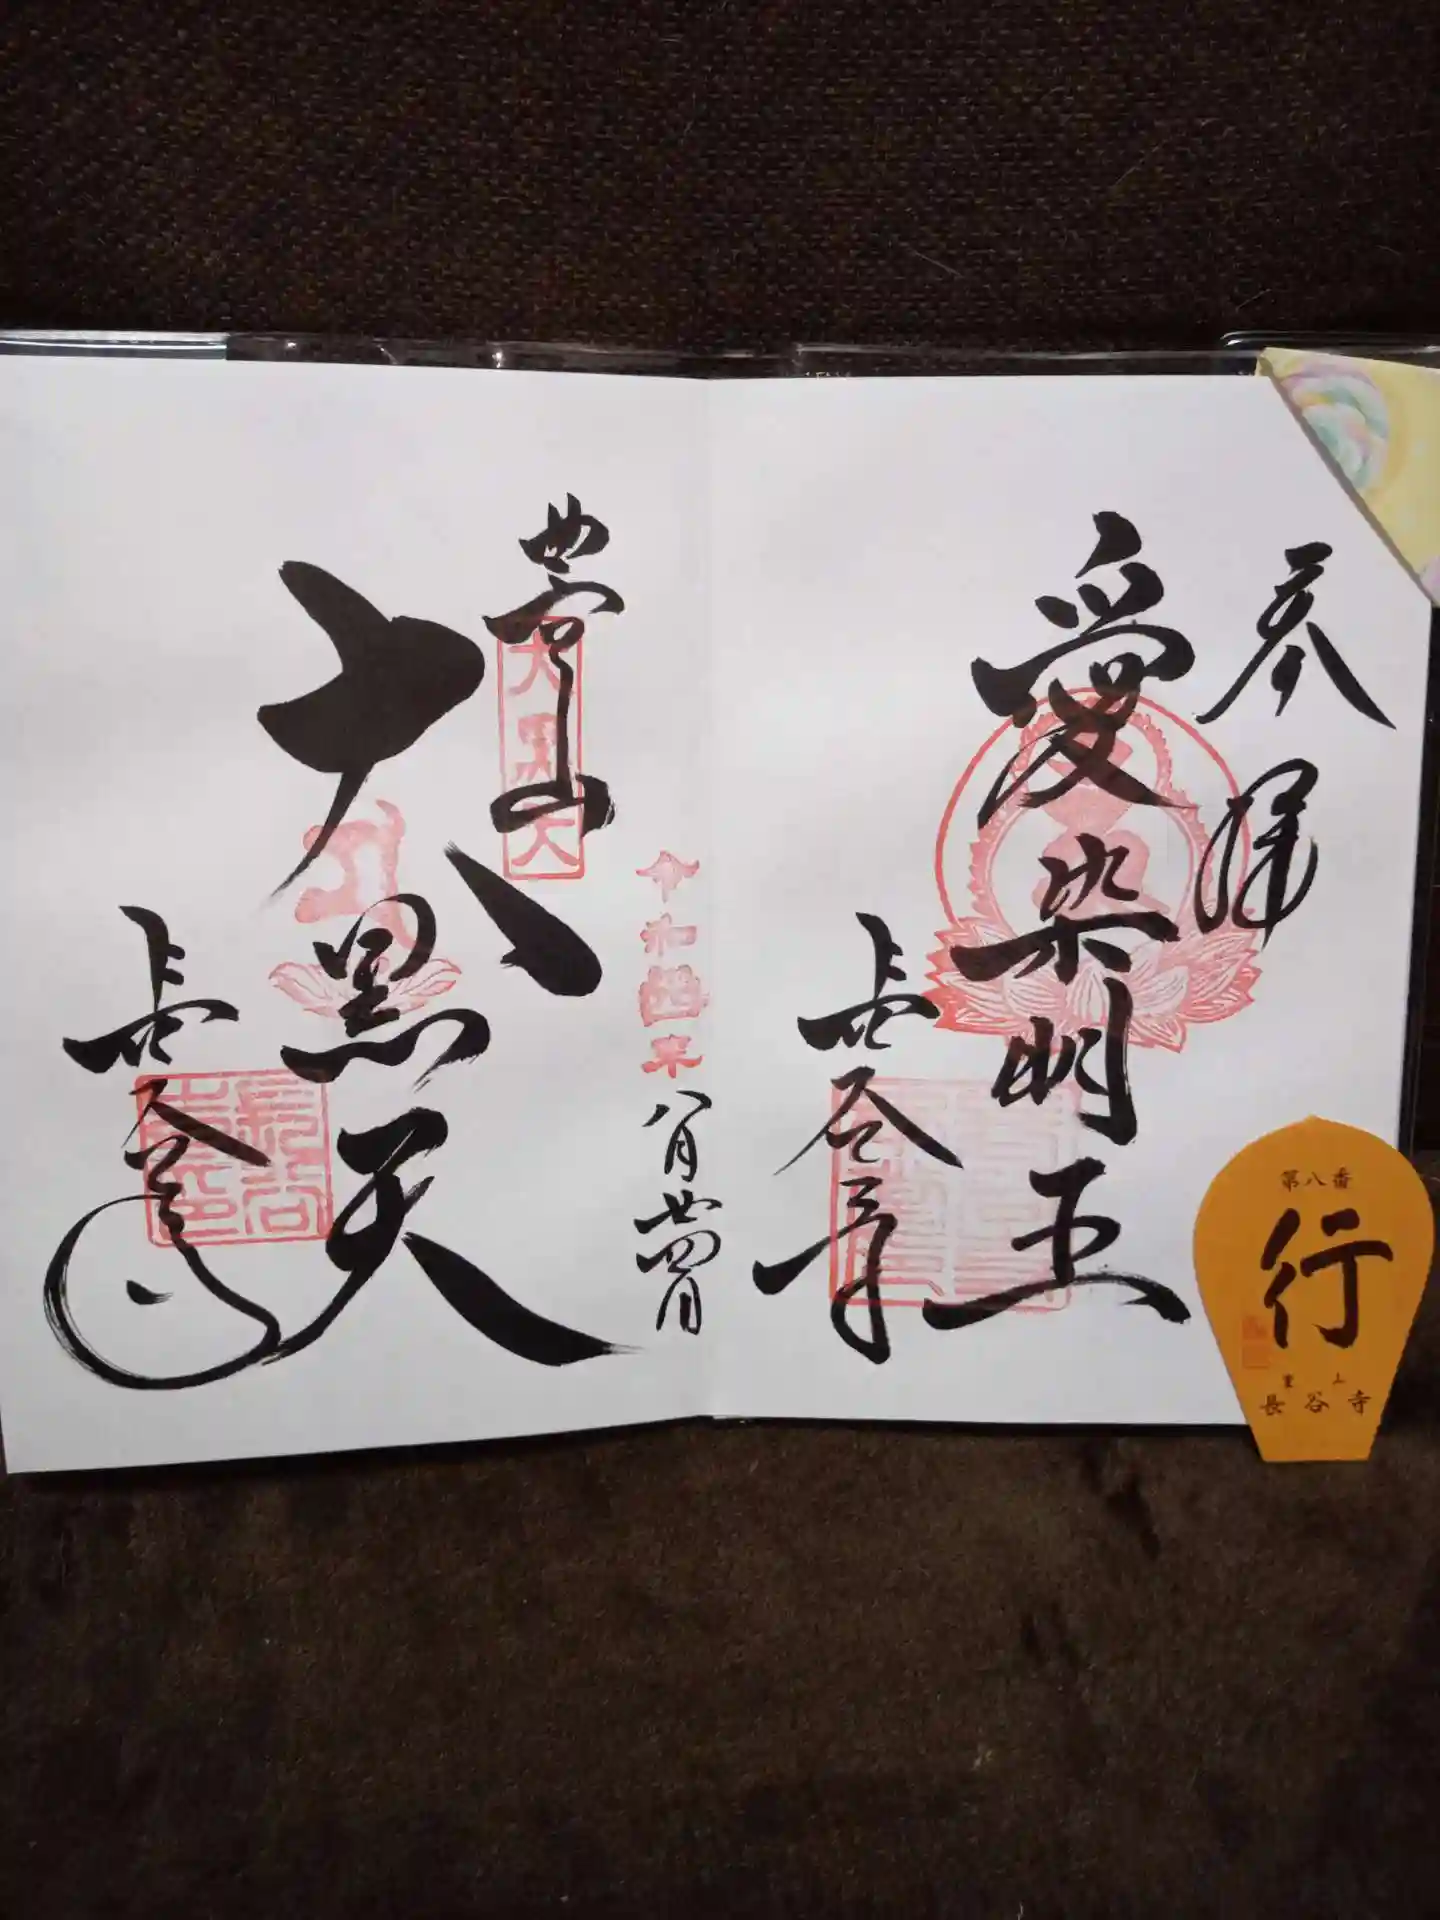 奉拝
愛染明王
長谷寺
豊山
大黒天
大黒天
長谷寺
令和四年
八月廿四日
第八番
行
豊山
長谷寺